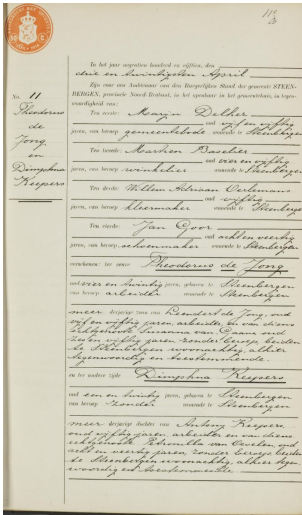 No. 11
Theodorus
de
Jong
en
Dimphna
Keepers
In het jaar negentien honderd en vijftien, den
drie en twintigsten April
Zijn voor ons Ambtenaar van den Burgerlijken Stand der gemeente STEEN-
BERGEN, provincie Noord-Brabant, in het openbaar in het gemeentehuis, in tegen-
woordigheid van:
Ten eerste: Marijn
oud vijf en vijftig
jaren, van beroep gemeentebode wonende te Steenbergen
Ten tweede: Martien Baselier
oud vier en vijftig
jaren, van beroep winkelier wonende te Steenbergen
Ten derde: Willem Adriaan Oerlemans
oud vijftig
jaren, van beroep kleermaker wonende te Steenbergen
Ten vierde: Jan Goor
oud acht en veertig
jaren, van beroep schoenmaker wonende te Steenbergen
verschenen: ter eenre Theodorus de Jong
oud vier en twintig jaren, geboren te Steenbergen
van beroep arbeider wonende te Steenbergen
meerderjarige zoon van Leendert de Jong, oud
vijf en vijftig jaren, arbeider en van diens
echtgenoote Susanna van, oud
zes en vijftig jaren, zonder beroep, beiden
te Steenbergen woonachtig, alhier
tegenwoordig en toestemmende
en ter andere zijde Dimphna Keepers
oud een en twintig jaren, geboren te Steenbergen
van beroep zonder wonende te Steenbergen
meerderjarige dochter van Antony Keepers
oud vijftig jaren, arbeider en van diens
echtgenoote Petronella van, oud
acht en veertig jaren, zonder beroep, beiden
te Steenbergen woonachtig, alhier tegen-
woordig en toestemmende